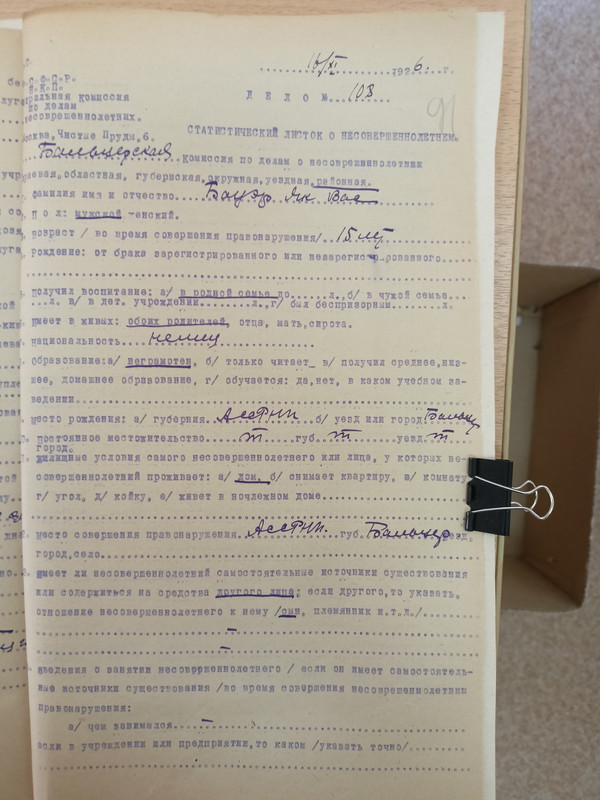 16/XI 1926. г.
С.Ф.С.Р.
Н.К.П.
Д Е Л О № 103
91
ральная комиссия
по делам
несовершеннолетних.
сква, Чистые Пруды, 6.
СТАТИСТИЧЕСКИЙ ЛИСТОК О НЕСОВЕРШЕННОЛЕТНЕМ.
Бальцерская комиссия по делам о несовершеннолетних
раевая, областная, губернская, окружная, уездная, районная.
фамилия имя и отчество Бауэр Ян Вас
П о л: мужской женский.
возраст / во время совершения правонарушения/ 15 лет
рождение: от брака зарегистрированного или незарегистрированного
получил воспитание: а/ в родной семье до л., б/ в чужой семье
л. в/ в дет. учреждении л., г/ был беспризорным л.
имеет в живых: обоих родителей, отца, мать, сирота.
национальность немец
образование: а/ неграмотен, б/ только читает в/ получил среднее, низ-
шее, домашнее образование, г/ обучается: да, нет, в каком учебном за-
ведении
место рождения: а/ губерния АССРНП б/ уезд или город Бальцер
постоянное местожительство т губ т уезд т
город.
жилищные условия самого несовершеннолетнего или лица, у которых не-
совершеннолетний проживает: а/ дом, б/ снимает квартиру, в/ комнату
г/ угол, д/ койку, е/ живет в ночлежном доме
место совершения правонарушения АССРНП губ. Бальцер уезд,
город, село
имеет ли несовершеннолетний самостоятельные источники существования
или содержиться на средства другого лица; если другого, то указать,
отношение несовершеннолетнего к нему /сын, племянник и.т.д./
сведения о занятии несовершеннолетнего / если он имеет самостоятель-
ные источники существования /во время совершения несовершеннолетним
правонарушения:
а/ чем занимался
если в учреждении или предприятии, то каком /указать точно/